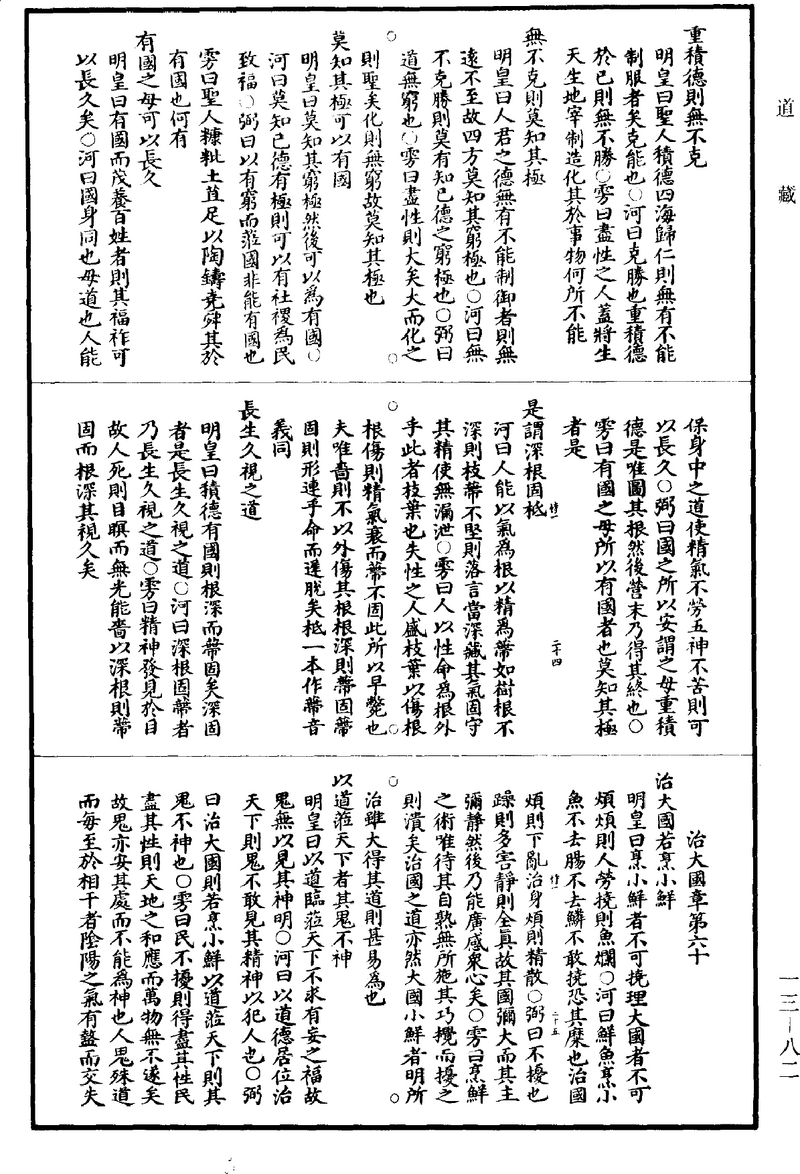 道藏
重積德則無不克
明皇曰聖人積德四海歸仁則無有不能
制服者矣克能也○河曰克勝也重積德
於已則無不勝○雱曰盡性之人蓋將生
天生地宰制造化其於事物何所不能
無不克則莫知其極
明皇曰人君之德無有不能制御者則無
遠不至故四方莫知其窮極也○河曰無
不克勝則莫有知已德之窮極也○弼曰
道無窮也○雱曰盡性則大矣大而化之
則聖矣化則無窮故莫知其極也
莫知其極可以有國
明皇曰莫知其窮極然後可以為有國○
河曰莫知已德有極則可以有社稷為民
致福○弼曰以有窮而蒞國非能有國也
雱曰聖人糠粃土苴足以陶鑄堯舜其於
有國也何有
有國之母可以長久
明皇曰有國而茂養百姓者則其福祚可
以長久矣○河曰國身同也母道也人能
保身中之道使精氣不勞五神不苦則可
以長久○弼曰國之所以安謂之母重積
德是唯圖其根然後營末乃得其終也○
雱曰有國之母所以有國者也莫知其極
者是
是謂深根固柢
二十四
河曰人能以氣為根以精為蔕如樹根不
深則枝蔕不堅則落言當深藏其氣固守
其精使無漏泄○雱曰人以性命為根外
乎此者枝葉也失性之人盛枝葉以傷根
根傷則精氣衰而蔕不固此所以早斃也
夫唯嗇則不以外傷其根根深則蔕固蔕
固則形連乎命而遲脫矣柢一本作蔕音
義同
長生久視之道
明皇曰積德有國則根深而蔕固矣深固
者是長生久視之道○河曰深根固蔕者
乃長生久視之道○雱曰精神發見於目
故人死則目瞑而無光能嗇以深根則蔕
固而根深其視久矣
治大國章第六十
治大國若烹小鮮
明皇曰烹小鮮者不可撓理大國者不可
煩煩則人勞撓則魚爛○河曰鮮魚烹小
魚不去腸不去鱗不敢撓恐其糜也治國
煩則下亂治身煩則精散○弼曰不擾也
二十五
躁則多害靜則全真故其國彌大而其主
彌靜然後乃能廣感衆心矣○雱曰烹鮮
之術唯待其自熟無所施其巧攪而擾之
則潰矣治國之道亦然大國小鮮者明所
治雖大得其道則甚易為也
以道蒞天下者其鬼不神
明皇曰以道臨蒞天下不求有妄之福故
鬼無以見其神明○河曰以道德居位治
天下則鬼不敢見其精神以犯人也○弼
曰治大國則若烹小鮮以道蒞天下則其
鬼不神也○雱曰民不擾則得盡其性民
盡其性則天地之和應而萬物無不遂矣
故鬼亦安其處而不能為神也人鬼殊道
而每至於相干者陰陽之氣有盭而交失
一三—八二